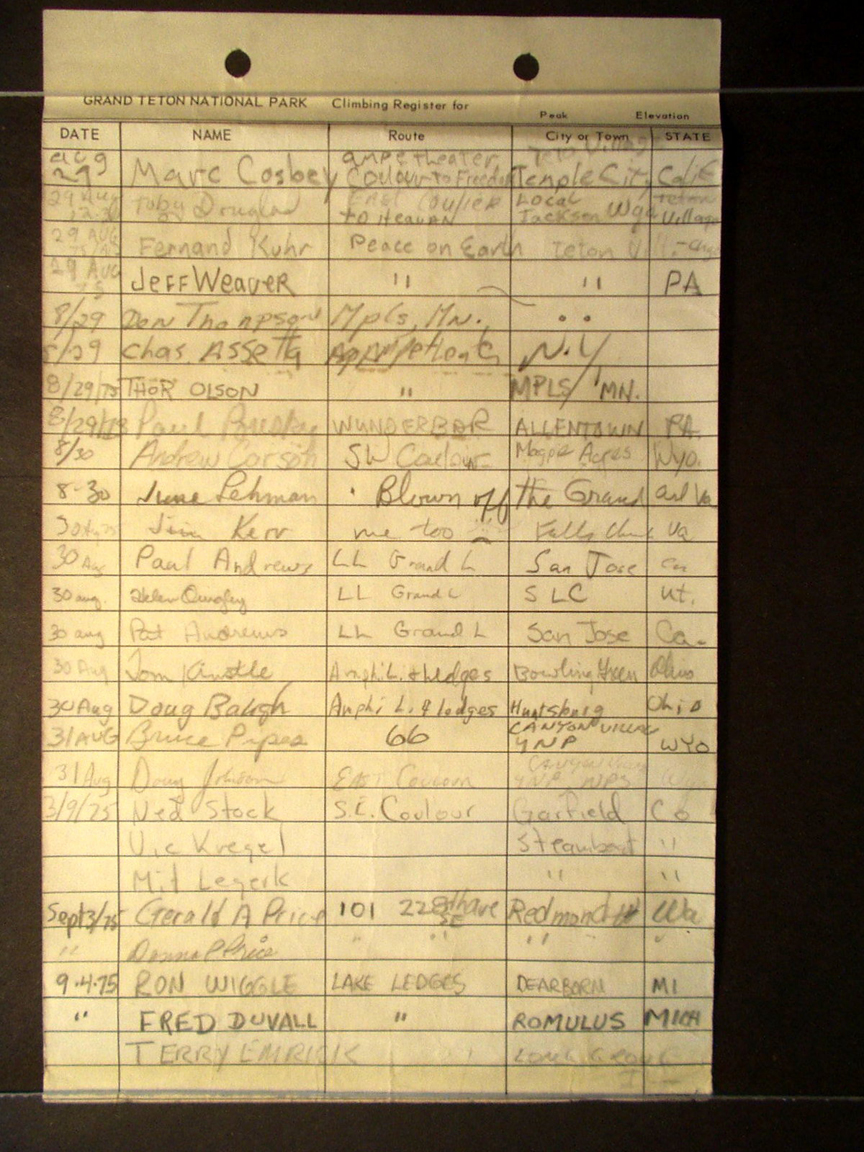 GRAND TETON NATIONAL PARK Climbing Register for
Peak Elevation
DATE NAME Route City or Town STATE
aug 29 Marc Cosbey Coulour to Freedom Temple City Calif
29 Aug Toby Douglas East Coulier to Heaven Local Jackson Wyo Teton Village
29 AUG Fernand Kuhr Peace on Earth Teton
29 AUG 75 JEFF WEAVER " " PA
8/29 Don Thompson Mpls, Mn. "
8/29 Chas. ASSETTA N.Y
8/29/75 THOR OLSON " MPLS MN.
8/29/75 Paul WUNDERBAR ALLENTOWN PA.
8/30 Andrew Carson SW Couloir Magpie Acres Wyo.
8-30 June Lehman Blown off the Grand Va
30 Aug 75 Jim Kerr me too Falls Church Va
30 Aug Paul Andrews LL Grand L San Jose Ca
30 aug. Helen Quigley LL Grand L SLC Ut.
30 aug Pat Andrews LL Grand L San Jose Ca.
30 Aug Tom Kinstle Amphi L. & ledges Bowling Green Ohio
30 Aug Doug Baugh Amphi L. & ledges Huntsburg Ohio
31 AUG Bruce Pipes 66 CANYON VILLAGE YNP WYO
31 Aug Doug Johnson East Couloir Canyon Village YNP NPS Wyo
3/9/75 Ned Stock S.E. Coulour Garfield Co
Vic Kregel Steamboat "
Mit Legerk " "
Sept 3/75 Gerald A Price 101 228th ave SE Redmond Wa
" Donna P Price " " " "
9.4.75 RON WIGGLE LAKE LEDGES DEARBORN MI
" FRED DUVALL " ROMULUS MICH
TERRY EMRICK LONG GROVE